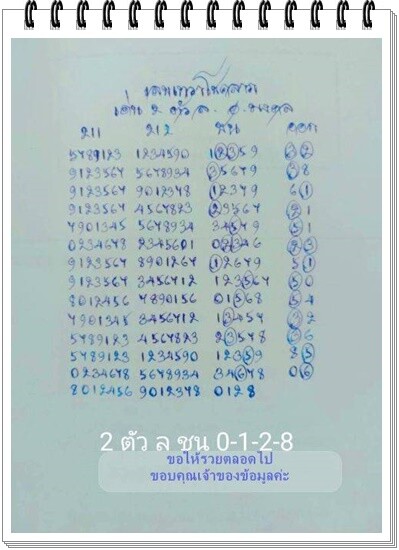 เด่น 2 ตัว ล.
211 212 ชน ออก
5489123 1234590 12359 32
9123564 5648934 35649 38
9123564 9012348 12349 61
9123564 4564823 23564 21
4901345 5648934 34549 51
0234648 2345601 02346 23
9123564 8901264 12649 51
9123564 3456412 123564 50
8012456 4890156 01568 54
4901345 3456412 13454 32
5489123 4564823 23548 36
5489123 1234590 12359 25
0234648 5648934 34648 06
8012456 9012348 0128
2 ตัว ล ชน 0-1-2-8
ขอให้รวยตลอดไป
ขอบคุณเจ้าของข้อมูลค่ะ